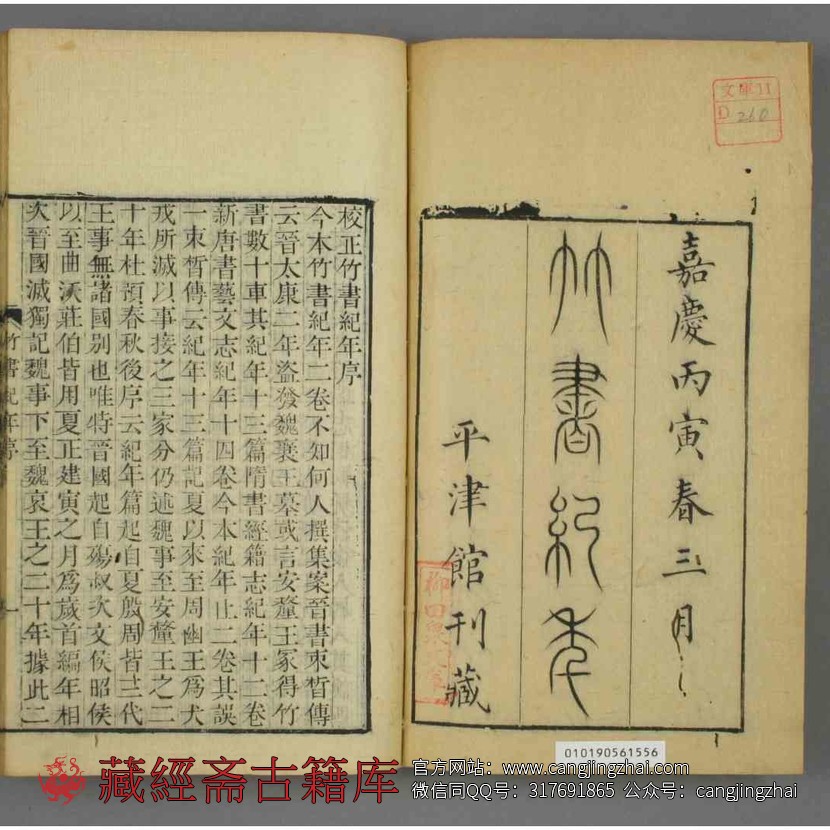 文庫11
D
210
嘉慶丙寅春三月
竹書紀年
平津館刊藏
校正竹書紀年序
今本竹書紀年二卷不知何人撰集案晉書束皙傳
云晉太康二年盜發魏襄王墓或言安釐王冢得竹
書數十車其紀年十三篇隋書經籍志紀年十二卷
新唐書藝文志紀年十四卷今本紀年止二卷其誤
一束皙傳云紀年十三篇記夏以來至周幽王爲犬
戎所滅以事接之三家分仍述魏事至安釐王之二
十年杜預春秋後序云紀年篇起自夏殷周皆三代
王事無諸國別也唯特晉國起自殤叔次文侯昭侯
以至曲沃莊伯皆用夏正建寅之月爲歲首編年相
次晉國滅獨記魏事下至魏哀王之二十年據此二
竹書紀年序
一
010190561556
藏經斋古籍库
官方网站：www.cangjingzhai.com
微信同QQ号：317691865 公众号：cangjingzhai